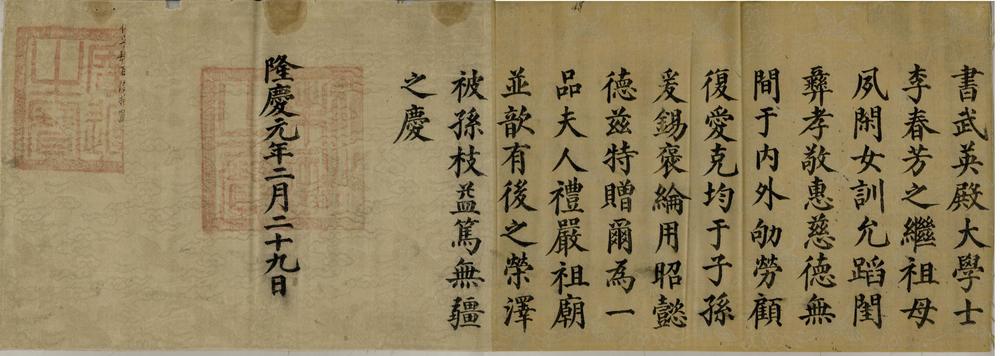 書武英殿大學士
李春芳之繼祖母
夙閑女訓允蹈閨
彝孝敬惠慈德無
間于內外劬勞顧
復愛克均于子孫
爰錫褒綸用昭懿
德茲特贈爾為一
品夫人禮嚴祖廟
並歆有後之榮澤
被孫枝益篤無疆
之慶
隆慶元年二月二十九日